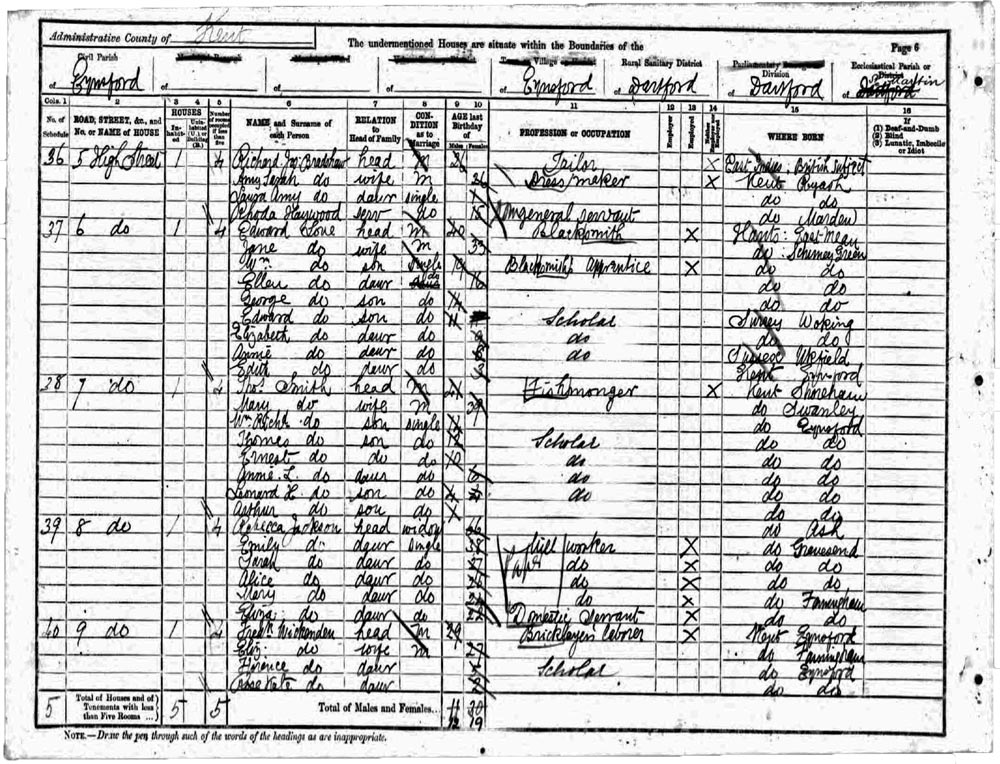 Administrative County of Kent
The undermentioned Houses are situate within the Boundaries of the
Page 6
Civil Parish
Village
Rural Sanitary District
Parliamentary
Division
Ecclesiastical Parish or
District
of Eynsford of of of of Eynsford of Dartford of Dartford of
Cols. 1 2 3 4 5 6 7 8 9 10 11 12 13 14 15 16
No. of Schedule
ROAD, STREET, &c., and No. or NAME of HOUSE
HOUSES
Inhabited
NAME and Surname of each Person
RELATION to Head of Family
CONDITION as to Marriage
AGE last Birthday of
Males Females
PROFESSION or OCCUPATION
Employer
Employed
WHERE BORN
If
(1) Deaf-and-Dumb
(2) Blind
(3) Lunatic, Imbecile
or Idiot
36 5 High Street 1 4 Richard Bradshaw head m 36 Tailor X East Indies: British Subject
Amy Sarah do wife m 36 Dress maker X Kent Ryash
Laura Amy do daur single do do
Rhoda Haywood serv do 15 general servant do Marden
37 6 do 1 4 Edward Love head m Blacksmith X Hants: East Meon
Jane do wife m do: Green
Wm do son single 19 Blacksmith's Apprentice X do do
Ellen do daur do 16 do do
George do son do 14 do do
Edward do son do 11 Scholar Surrey Woking
Elizabeth do daur do do do do
Annie do daur do do Sussex
Edith do daur do 3 Kent Eynsford
7 do 1 4 Thos Smith head m Fishmonger X Kent Shoreham
Mary do wife m 39 do Swanley
Wm Richd do son single do Eynsford
Thomas do son do 12 Scholar do do
Ernest do do do 10 do do do
Annie L. do daur do do do do
Leonard H. do son do 4 do do do
Arthur do son do do do
39 8 do 1 4 Rebecca Jackson head widow do Ash
Emily do daur single Paper Mill worker X do Gravesend
Sarah do daur do do X do do
Alice do daur do do X do do
Mary do daur do do X do Farningham
Eliza do daur do 22 Domestic Servant X do do
40 9 do 1 4 Fredk Wickenden head m 29 Bricklayers laborer X Kent Eynsford
Eliz. do wife m 27 do Farningham
Florence do daur Scholar do Eynsford
Rose Kate do daur do do
5 Total of Houses and of Tenements with less than Five Rooms ... 5 5 Total of Males and Females... 11 20
12 19
NOTE.—Draw the pen through such of the words of the headings as are inappropriate.